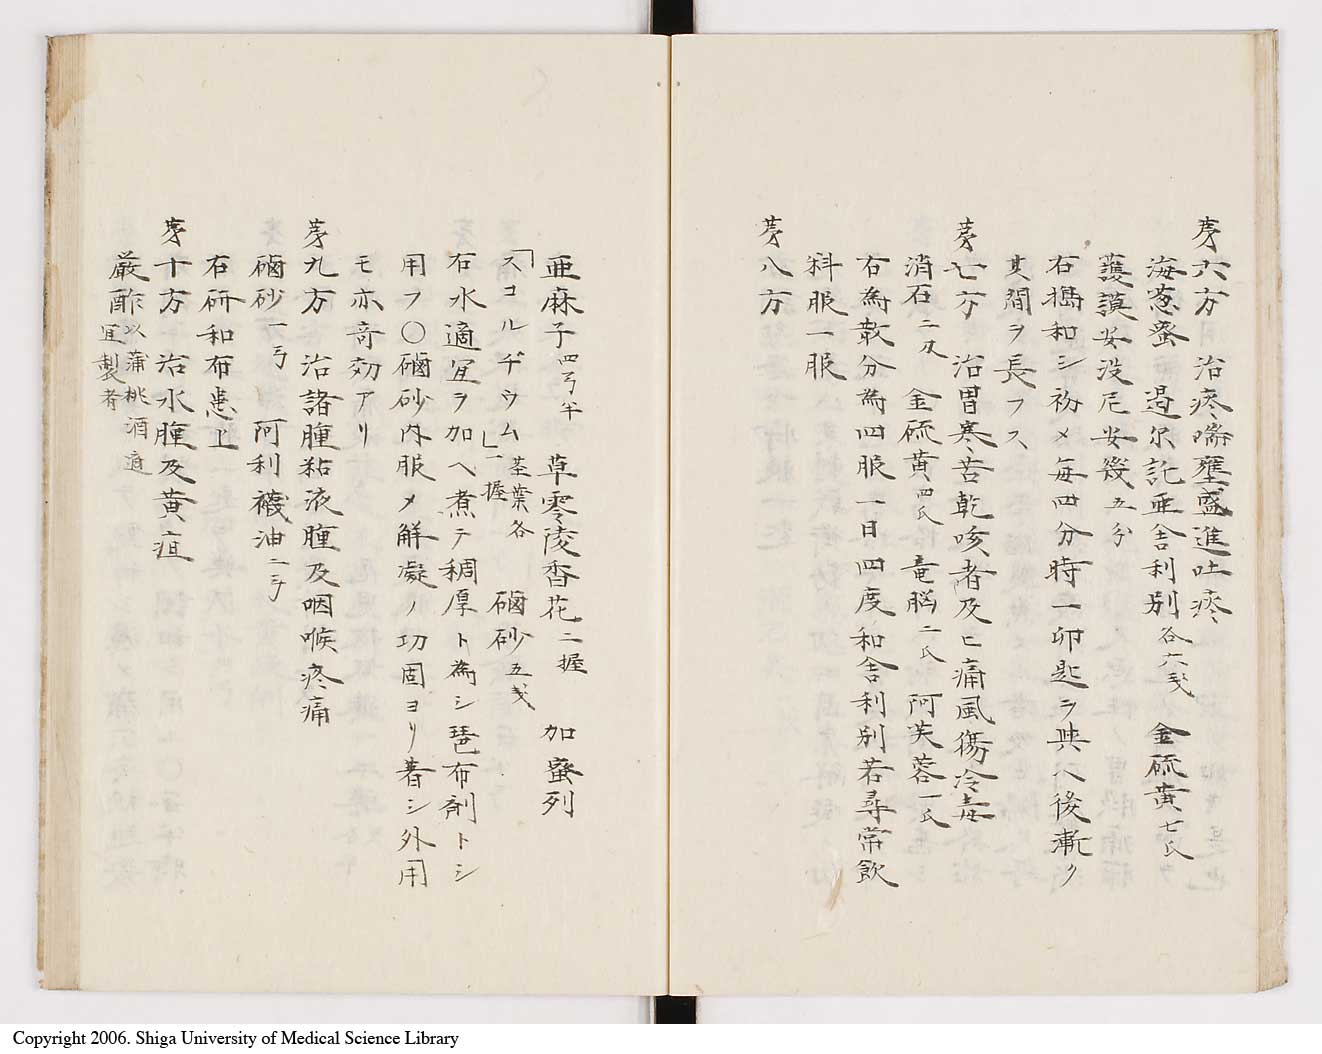 第六方 治痰喘壅盛進吐痰
海葱蜜 遏尔託亜舎利別各六戔 金硫黄七氏
護謨安没尼安幾五分
右搗和シ初メ毎四分時一卯匙ヲ与ヘ後漸ク
其間ヲ長フス
第七方 治胃寒苦乾咳者及ヒ痛風傷冷毒
消石二刄 金硫黄四氏 竜脳二氏 阿芙蓉一氏
右為散分為四服一日四度和舎利別若尋常飲
料服一服
第八方
亜麻子四弓半 草零陵香花二握 加蜜列
「スコルヂウム」茎葉各一握 磠砂五戔
右水適宜ヲ加ヘ煮テ稠厚ト為シ琶布剤トシ
用フ〇磠砂内服メ解凝ノ功固ヨリ著シ外用
モ亦奇効アリ
第九方 治諸腫粘液腫及咽喉疼痛
磠砂一弓 阿利襪油二弓
右研和布患上
第十方 治水腫及黄疸
厳酢以蒲桃酒適宜製者
Copyright 2006. Shiga University of Medical Science Library